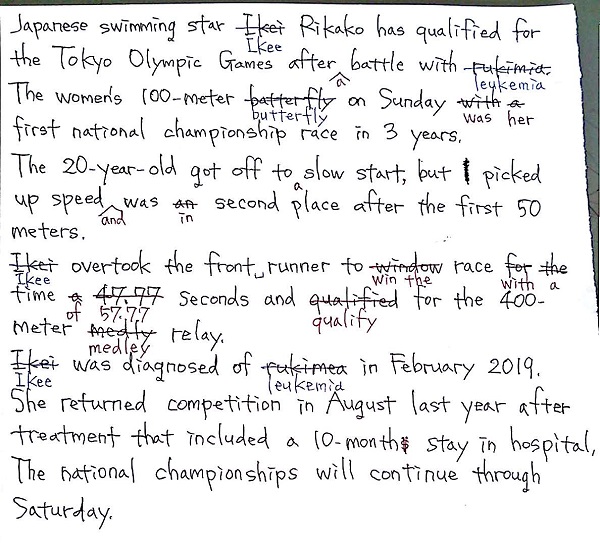 Japanese swimming star Ikei Rikako has qualified for
Ikee
the Tokyo Olympic Games after battle with rukimia.
a leukemia
The women's 100-meter batterfly on Sunday with a
butterfly was her
first national championship race in 3 years.
The 20-year-old got off to slow start, but picked
a
up speed was an second place after the first 50
and in
meters.
Ikei overtook the front runner to window race for the
Ikee win the with a
time a 47.77 seconds and qualified for the 400-
of 57.77 qualify
meter medly relay.
medley
Ikei was diagnosed of rukimea in February 2019.
Ikee leukemia
She returned competition in August last year after
treatment that included a 10-month stay in hospital,
The national championships will continue through
Saturday.